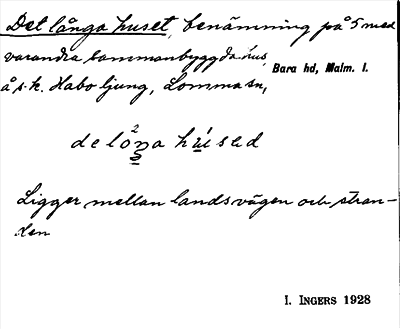 Det långa huset, benämning på 5 med
varandra sammanbyggda hus,
å s.k. Habo ljung, Lomma sn,
Bara hd, Malm. l.
Ligger mellan landsvägen och stran-
den
I. INGERS 1928